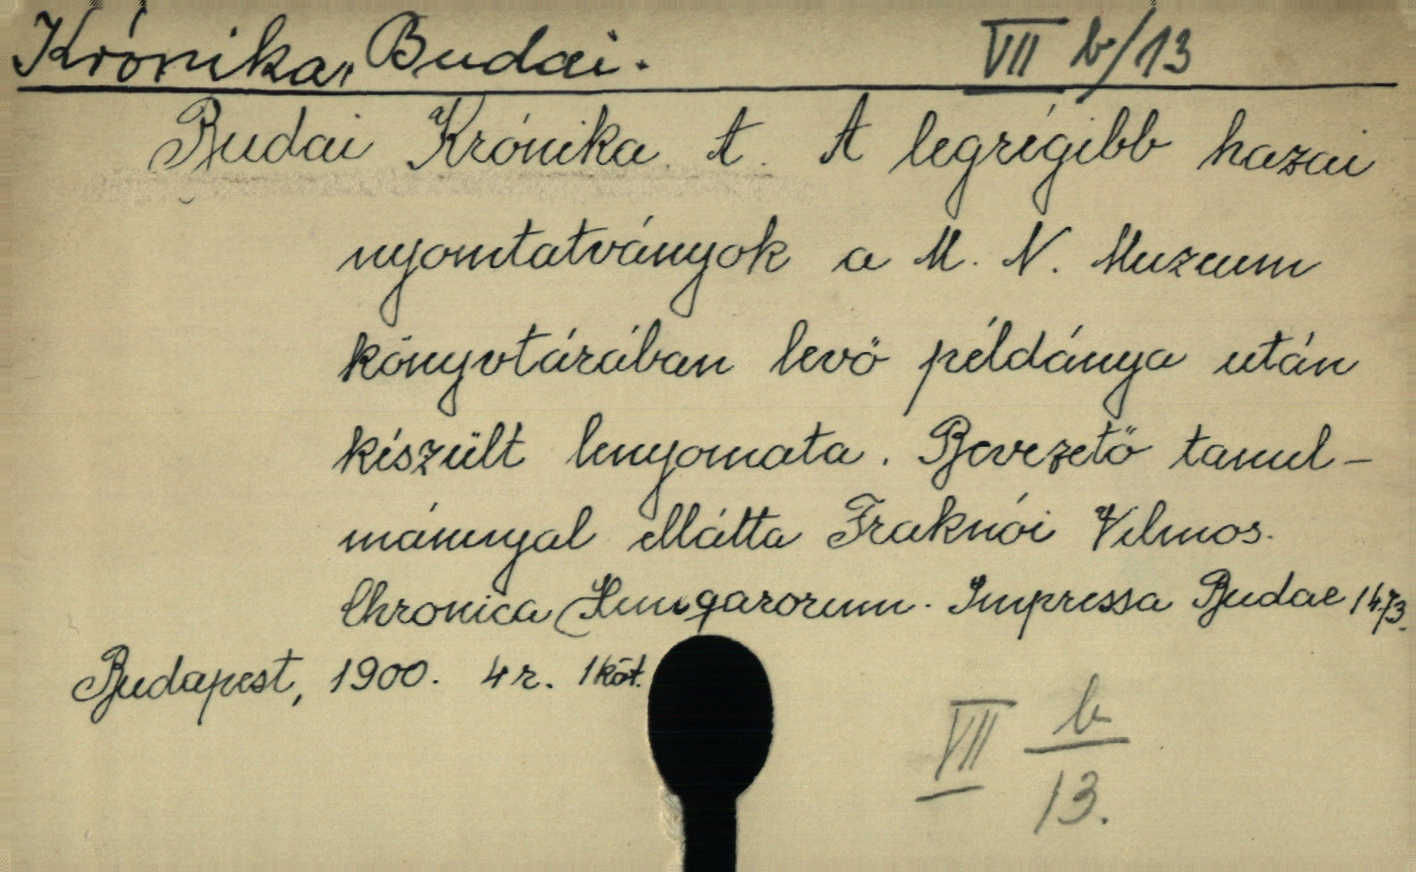 Krónika, Budai. VII b/13
Budai Krónika. A. A legrégibb hazai
nyomtatványok a M. N. Muzeum
könyvtárában levő példánya után
készült lenyomata. Bevezető tanul-
mánnyal ellátta Fraknói Vilmos.
Chronica Hungarorum. Impressa Budae 1473.
Budapest, 1900. 4r. 1 köt.
VII b
13.